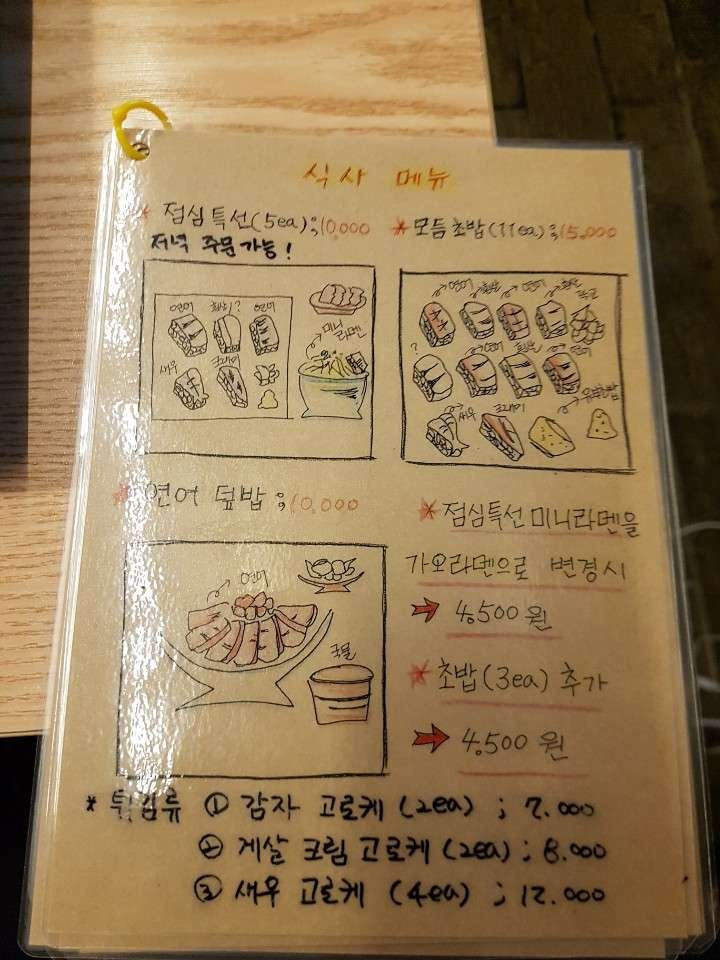 식사 메뉴
* 점심특선(5ea);10,000
저녁 주문가능!
* 모듬초밥(11ea);15,000
연어 흰살? 연어
새우 크래미
미니
라멘
연어 흰살 연어 흰살
? 연어 흰살 연어
새우 크래미 유부초밥
* 연어 덮밥;10,000
연어
국물
* 점심특선 미니라멘을
가오라멘으로 변경시
→ 4,500원
* 초밥(3ea) 추가
→ 4,500원
* 튀김류 ① 감자 고로케 (2ea) ; 7.000
② 게살 크림 고로케 (2ea) ; 8.000
③ 새우 고로케 (4ea) ; 12.000